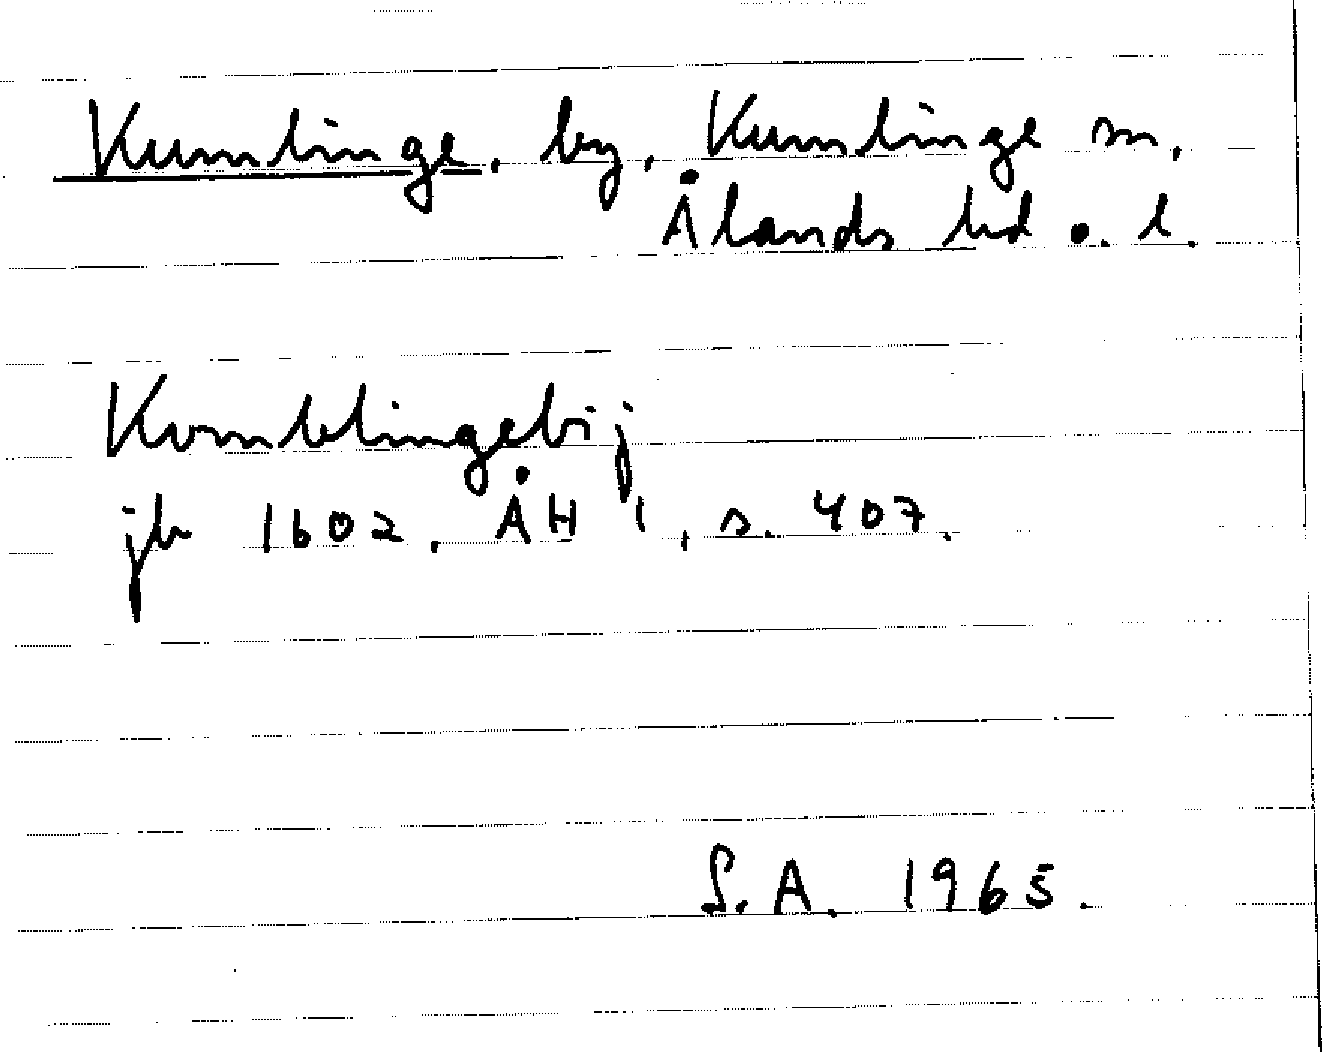 Kumlinge, by, Kumlinge sn,
Ålands hd o. l.
Komblingebij
jb 1602, ÅH 1, s. 407.
S.A. 1965.